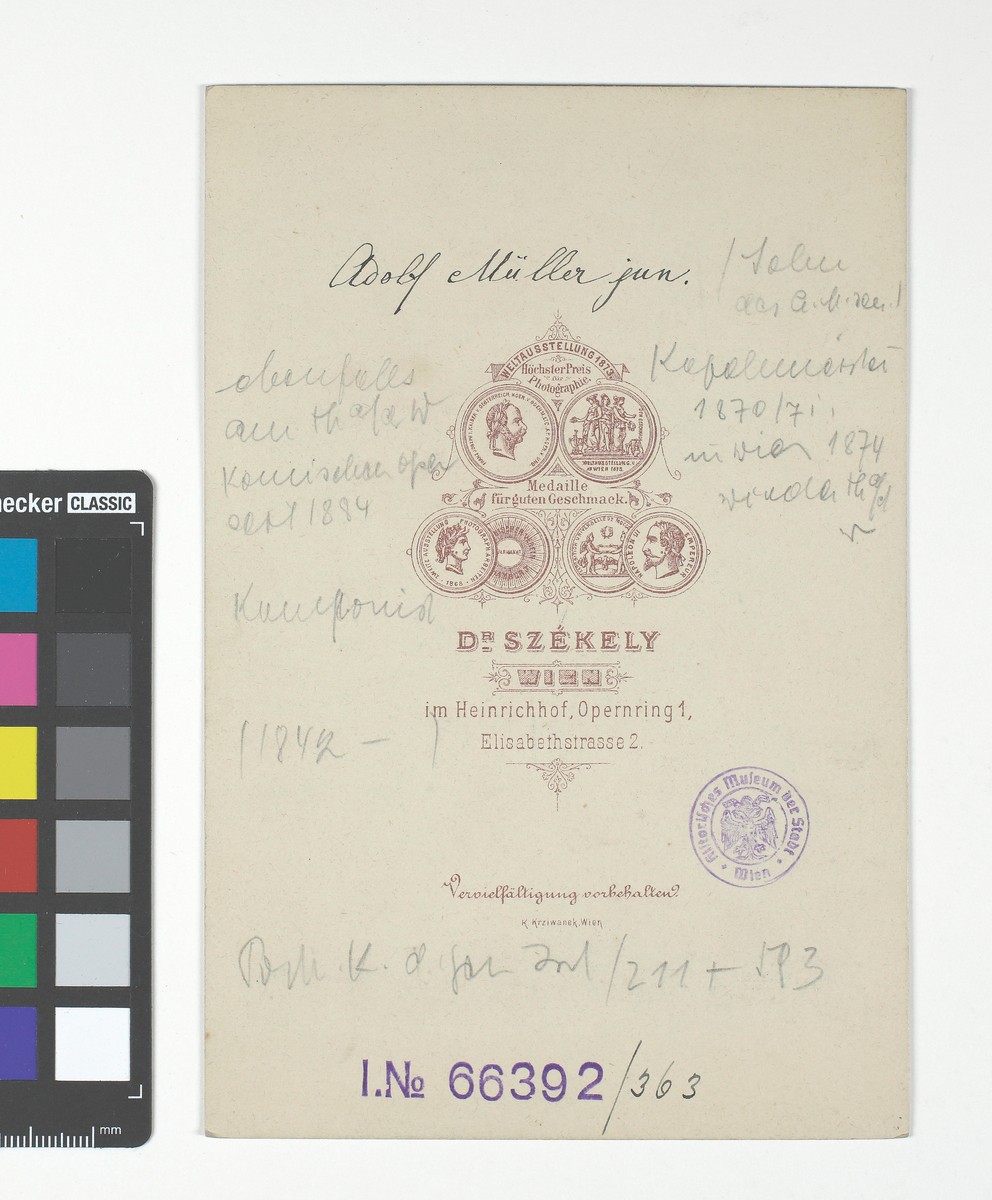 Adolf Müller jun.
(Sohn
des A. M. sen.)
Kapellmeister
1870/71.
in Wien 1874
wieder
ebenfalls
am
Komischen Oper
seit 1884
Komponist
(1842 – )
WELTAUSSTELLUNG 1873.
Höchster Preis
für
Photographie.
WELTAUSSTELLUNG
IN WIEN 1873
Medaille
für guten Geschmack.
1868
NAPOLEON III EMPEREUR
DR. SZÉKELY
WIEN
im Heinrichhof, Opernring 1,
Elisabethstrasse 2.
Historisches Museum der Stadt
Wien
Vervielfältigung vorbehalten.
K. Krziwanek, Wien
/211 + 593
I.No 66392/363
necker CLASSIC
mm